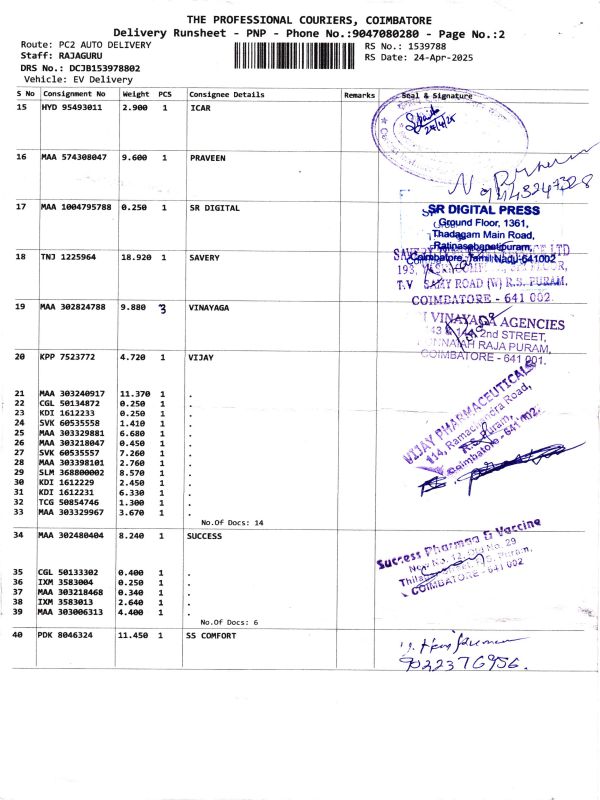 THE PROFESSIONAL COURIERS, COIMBATORE
Delivery Runsheet - PNP - Phone No.:9047080280 - Page No.:2
Route: PC2 AUTO DELIVERY
RS No.: 1539788
Staff: RAJAGURU
RS Date: 24-Apr-2025
DRS No.: DCJB153978802
Vehicle: EV Delivery
S No Consignment No Weight PCS Consignee Details Remarks Seal & Signature
15 HYD 95493011 2.900 1 ICAR
24/4/25
16 MAA 574308047 9.600 1 PRAVEEN
17 MAA 1004795788 0.250 1 SR DIGITAL
SR DIGITAL PRESS
Ground Floor, 1361,
Thadagam Main Road,
Ratinasabapatipuram,
Coimbatore, Tamil Nadu-641002
18 TNJ 1225964 18.920 1 SAVERY
SAMY ROAD (W) R.S. PURAM,
COIMBATORE - 641 002.
19 MAA 302824788 9.880 3 VINAYAGA
VINAYAGA AGENCIES
2nd STREET,
RAJA PURAM,
COIMBATORE - 641 001.
20 KPP 7523772 4.720 1 VIJAY
VIJAY PHARMACEUTICALS
114, Ramachandra Road,
R.S. Puram,
Coimbatore - 641 002.
21 MAA 303240917 11.370 1 .
22 CGL 50134872 0.250 1 .
23 KDI 1612233 0.250 1 .
24 SVK 60535558 1.410 1 .
25 MAA 303329881 6.680 1 .
26 MAA 303218047 0.450 1 .
27 SVK 60535557 7.260 1 .
28 MAA 303398101 2.760 1 .
29 SLM 368800002 8.570 1 .
30 KDI 1612229 2.450 1 .
31 KDI 1612231 6.330 1 .
32 TCG 50854746 1.300 1 .
33 MAA 303329967 3.670 1 .
No.Of Docs: 14
34 MAA 302480404 8.240 1 SUCCESS
Success Pharmaa & Vaccine
New No. 12, Old No. 29
Puram,
COIMBATORE - 641 002
35 CGL 50133302 0.400 1 .
36 IXM 3583004 0.250 1 .
37 MAA 303218468 0.340 1 .
38 IXM 3583013 2.640 1 .
39 MAA 303006313 4.400 1 .
No.Of Docs: 6
40 PDK 8046324 11.450 1 SS COMFORT